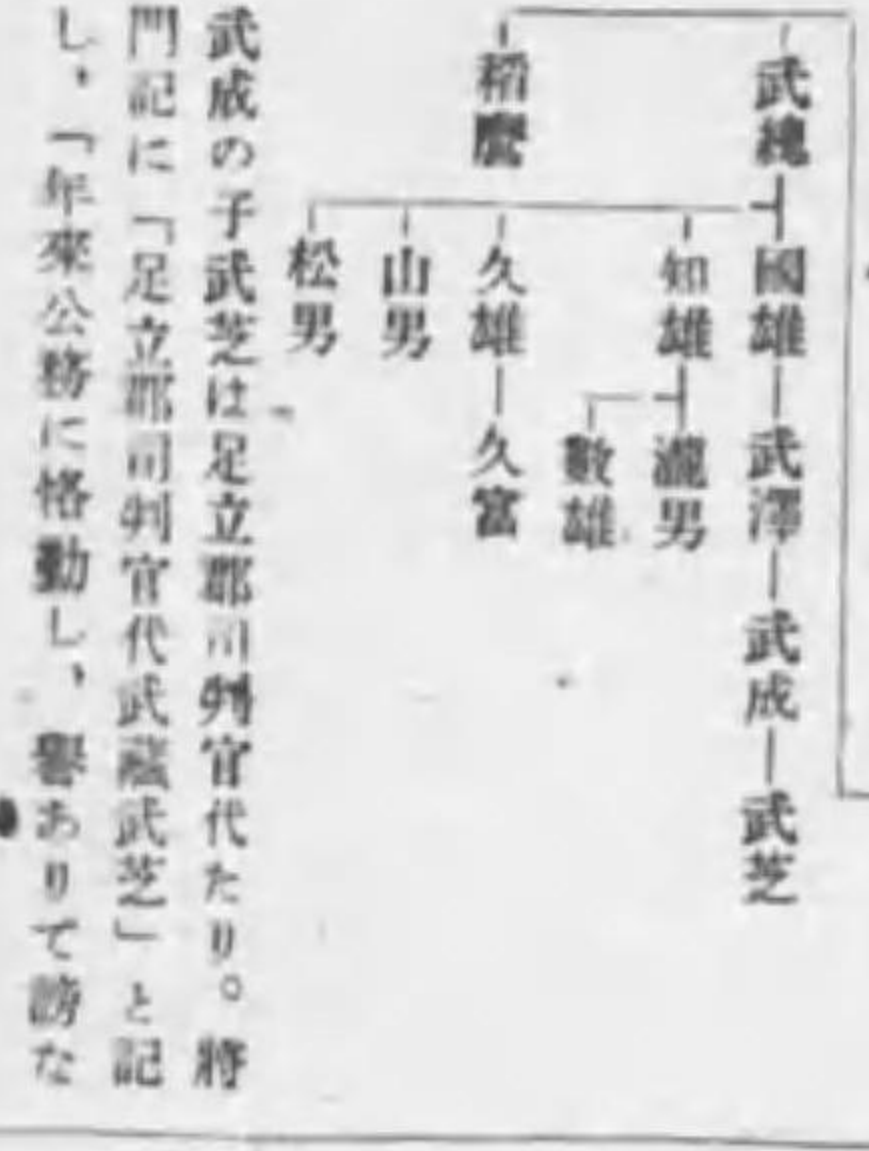 武總
國雄
武澤
武成
武芝
知雄
瀧男
數雄
稻麿
久雄
久富
山男
松男
武成の子武芝は足立郡司判官代たり。將
門記に「足立郡司判官代武藏武芝」と記
し、「年來公務に恪勤し、譽ありて謗な